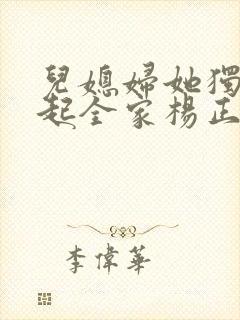 兒媳婦她獨
起全家楊正
李偉華